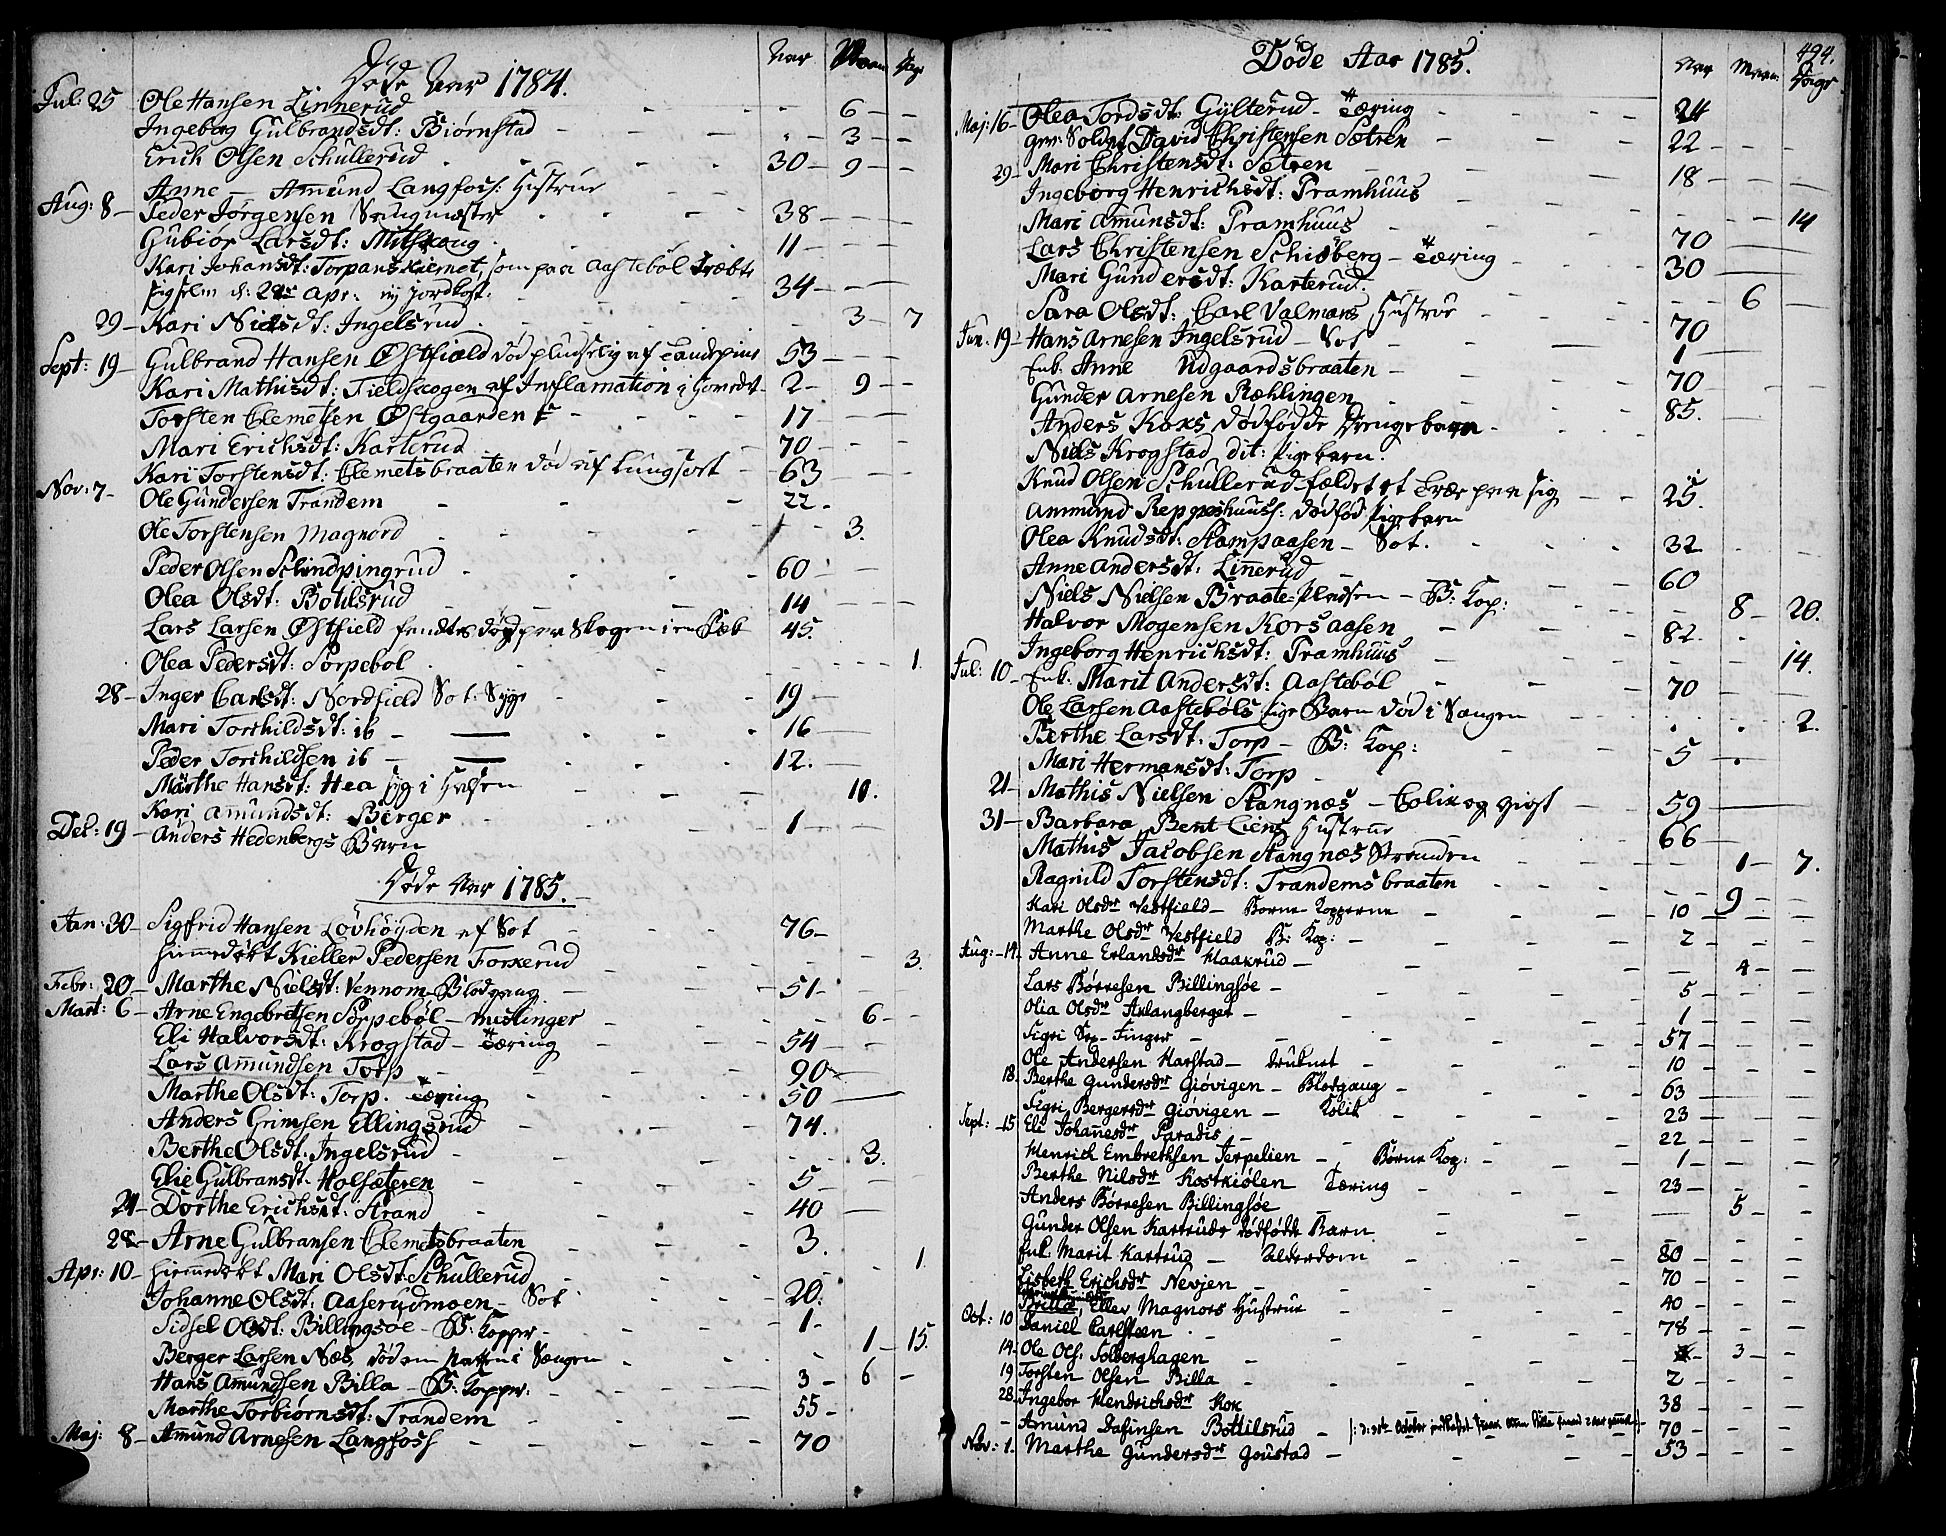 Døde Aar 1784. Aar Maan Dage
Jul: 25 Ole Hansen Linnerud - - 6 - -
Ingeborg Gulbrandsdt: Biørnstad - - - 3 - -
Erich Olsen Schullerud - - 30 - 9 - -
Anne - Amund Langfoss: Hustrue
Aug: 8 - Peder Jørgensen - - 38 - - -
Gubiør Larsdt: Mitskoug - 11 - - -
Kari Johansdt: Torpanskiemet, som paa Aastebøl
d: 22de Apr: ny jordkast. 34 - - -
29 - Kari Nielsdt: Ingelsrud - - - 3 - 7
Sept: 19 - Gulbrand Hansen Østfiæld død pludselig af 53 - - -
Kari Mathisdt: Fieldskogen af Inflamation i 2 - 9 - -
Torsten Clemetsen Østgaarden - - 17 - - -
Mari Erichsdt: Karterud 70 - - -
Kari Torstensdt: Clemetsbraaten død af Lungsot - 63 - -
Nov: 7 - Ole Gundersen Trandem - - - 22 -
Ole Torstensen Magnord - - - 3.
Peder Olsen Schindpingrud - - - 60 - -
Olea Olsdt: Botilsrud - - - 14 - - -
Lars Larsen Østfield fandtes død paa Skogen i en Bek 45.
Olea Pedersdt: Sorpebøl - - - - 1.
28 - Inger Carlsdt: Nordfield Sot: Syge - - 19 -
Mari Torchildsdt: ib - — - - 16 -
Peder Torchildsen ib - — - - 12. -
Marthe Hansdt: Hea - - - 10.
Kari Amundsdt: Berger - - - 1 - -
Dec: 19 - Anders Hedenbergs Barn
Døde Aar 1785.
Jan: 30 - Sigfrid Hansen Løvhøyden af Sot - - 76 -
hiemmedøbt Kieller Pedersen Torkerud - - - 3.
Febr: 20 - Marthe Nielsdt: Vennom - Blodgang - - 51 - -
Mart: 6 - Arne Engebretsen Sorpebøl - meslinger - - 6 - -
Eli Halvorsdt: Krogstad - Tæring - - 54 - -
Lars Amundsen Torp - - 90 -
Marthe Olsdt: Torp. Tæring - - 50 —
Anders Grimsen Ellingsrud - - 74.
Berthe Olsdt: Ingelsrud - - - 3.
Elie Gulbransdt: Holsæteren - - 5 - -
21 - Dorthe Erichsdt: Strand - - 40 -
28 - Arne Gulbransen Clemetsbraaten - - 3.
Apr: 10 - hiemmedøbt Mari Olsdt: Schullerud - - - 1
Johanne Olsdt: Aaserudmoen - Sot - - 20.
Sidsel Olsdt: Billingsøe - B: Kopper - - 1 -
Berger Larsen Næs, død om Natten i Sængen - - 1 - 15.
Hans Amundsen Billa - B: Kopper - - 3 - 6 -
Marthe Torbiørnsdt: Trandem - - 55 -
Maj: 8 - Amund Arnesen Langfoss - - 70
494.
Døde Aar 1785. Aar Maan Dage
Maj: 16 - Olea Tordsdt: Gylterud - Tæring - - 24
Soldat David Christensen Sætren - - 22 - - -
29 - Mari Christensdt: Sætren - - 18 - - -
Ingeborg Henrichsdt: Pramhuus
Mari Amunsdt: Pramhuus - - - 14
Lars Christensen Schiøberg - Tæring - 70 —
Mari Gundersdt: Karterud. - - 30 —
Sara Olsdt: Carl Valmans Hustrue - - 6 -
Jun: 19 - Hans Arnesen Ingelsrud - Sot - 70
Enk. Anne Udgaardsbraaten - - 1 -
Gunder Arnesen Ræhlingen - - 70 - -
Anders Koxs dødfødde Drengebarn - 85. -
Niels Krogstad dit: Pigebarn.
Knud Olsen Schullerud - fældet et Træ paa sig - - 25.
Ammund Reppeshuus: dødfød Pigebarn
Olea Knudsdt: Stampaasen - Sot. - - 32 - -
Anne Andersdt: Linnerud - - 60
Niels Nielsen Braate-Pladsen - B: Kop: - - 8 - 20.
Halvor Mogensen Korsaasen - - 82. -
Ingeborg Henrichsdt: Pramhuus - - - 14.
Jul: 10 - Enk: Marit Andersdt: Aastebøl - - 70 - -
Ole Larsen Aastebøls Pige Barn død i Sængen - - - 2.
Berthe Larsdt: Torp - B: Kop: - - 5 -
Mari Hermansdt: Torp -
21 - Mathis Nielsen Stangnæs - Colik og Gigt - 59 —
31 - Barbara Bent Liens Hustrue 66 -
Mathis Jacobsen Stangnæs Stranden - - 1 - 7.
Ragnild Torstensdt: Trandemsbraaten - - - 9 - -
Kari Olsdr Vestfield - Borne Kopperne - - 10 - -
Marthe Olsdr Vestfield B: Kop: - - 2 - -
Aug: - 14 - Anne Erlandsdr Haakrud - - - 4 - -
Lars Børresen Billingsøe - - - 5 - -
Olia Olsdr Aklangberget - - - 1 - -
Sigri - Finger - - - 57 - -
Ole Andersen Harstad - druknet - - 10 - -
18 - Berthe Gundersdr Giøvigen - Blodgang - - 63 - -
Sigri Bergersdr Giøvigen - Kolik - - 23 - -
Sept: - 15 Eli Johannesdr Paradis - - 22 - -
Henrich Embrethsen Jerpelien - Børne Kop: - - 1 - -
Berthe Nilsdr Kostkiølen Tæring - - 23 - -
Anders Børresen Billingsøe - - — 5 - -
Gunder Olsen Kartruds dødfødt Barn - - -
Enk: Marit Kartrud - Alderdom - - 80 - -
Lisbeth Erichsdr Nevjen - - 70 - -
Britta, Eller Magnors Hustrue - - 40 - -
Oct: 10 Daniel Carlsteen - - 78 - -
14 - Ole Ols: Solberghagen - - - 3 - -
19 Torsten Olsen Billa - - 2 - -
28 Ingebor Hendrichsdr Kox - - 38 - -
- Amund Dafinsen Bottilsrud - 70 - -
Nov: 1. Marthe Gundersdr Goustad - - 53 - -